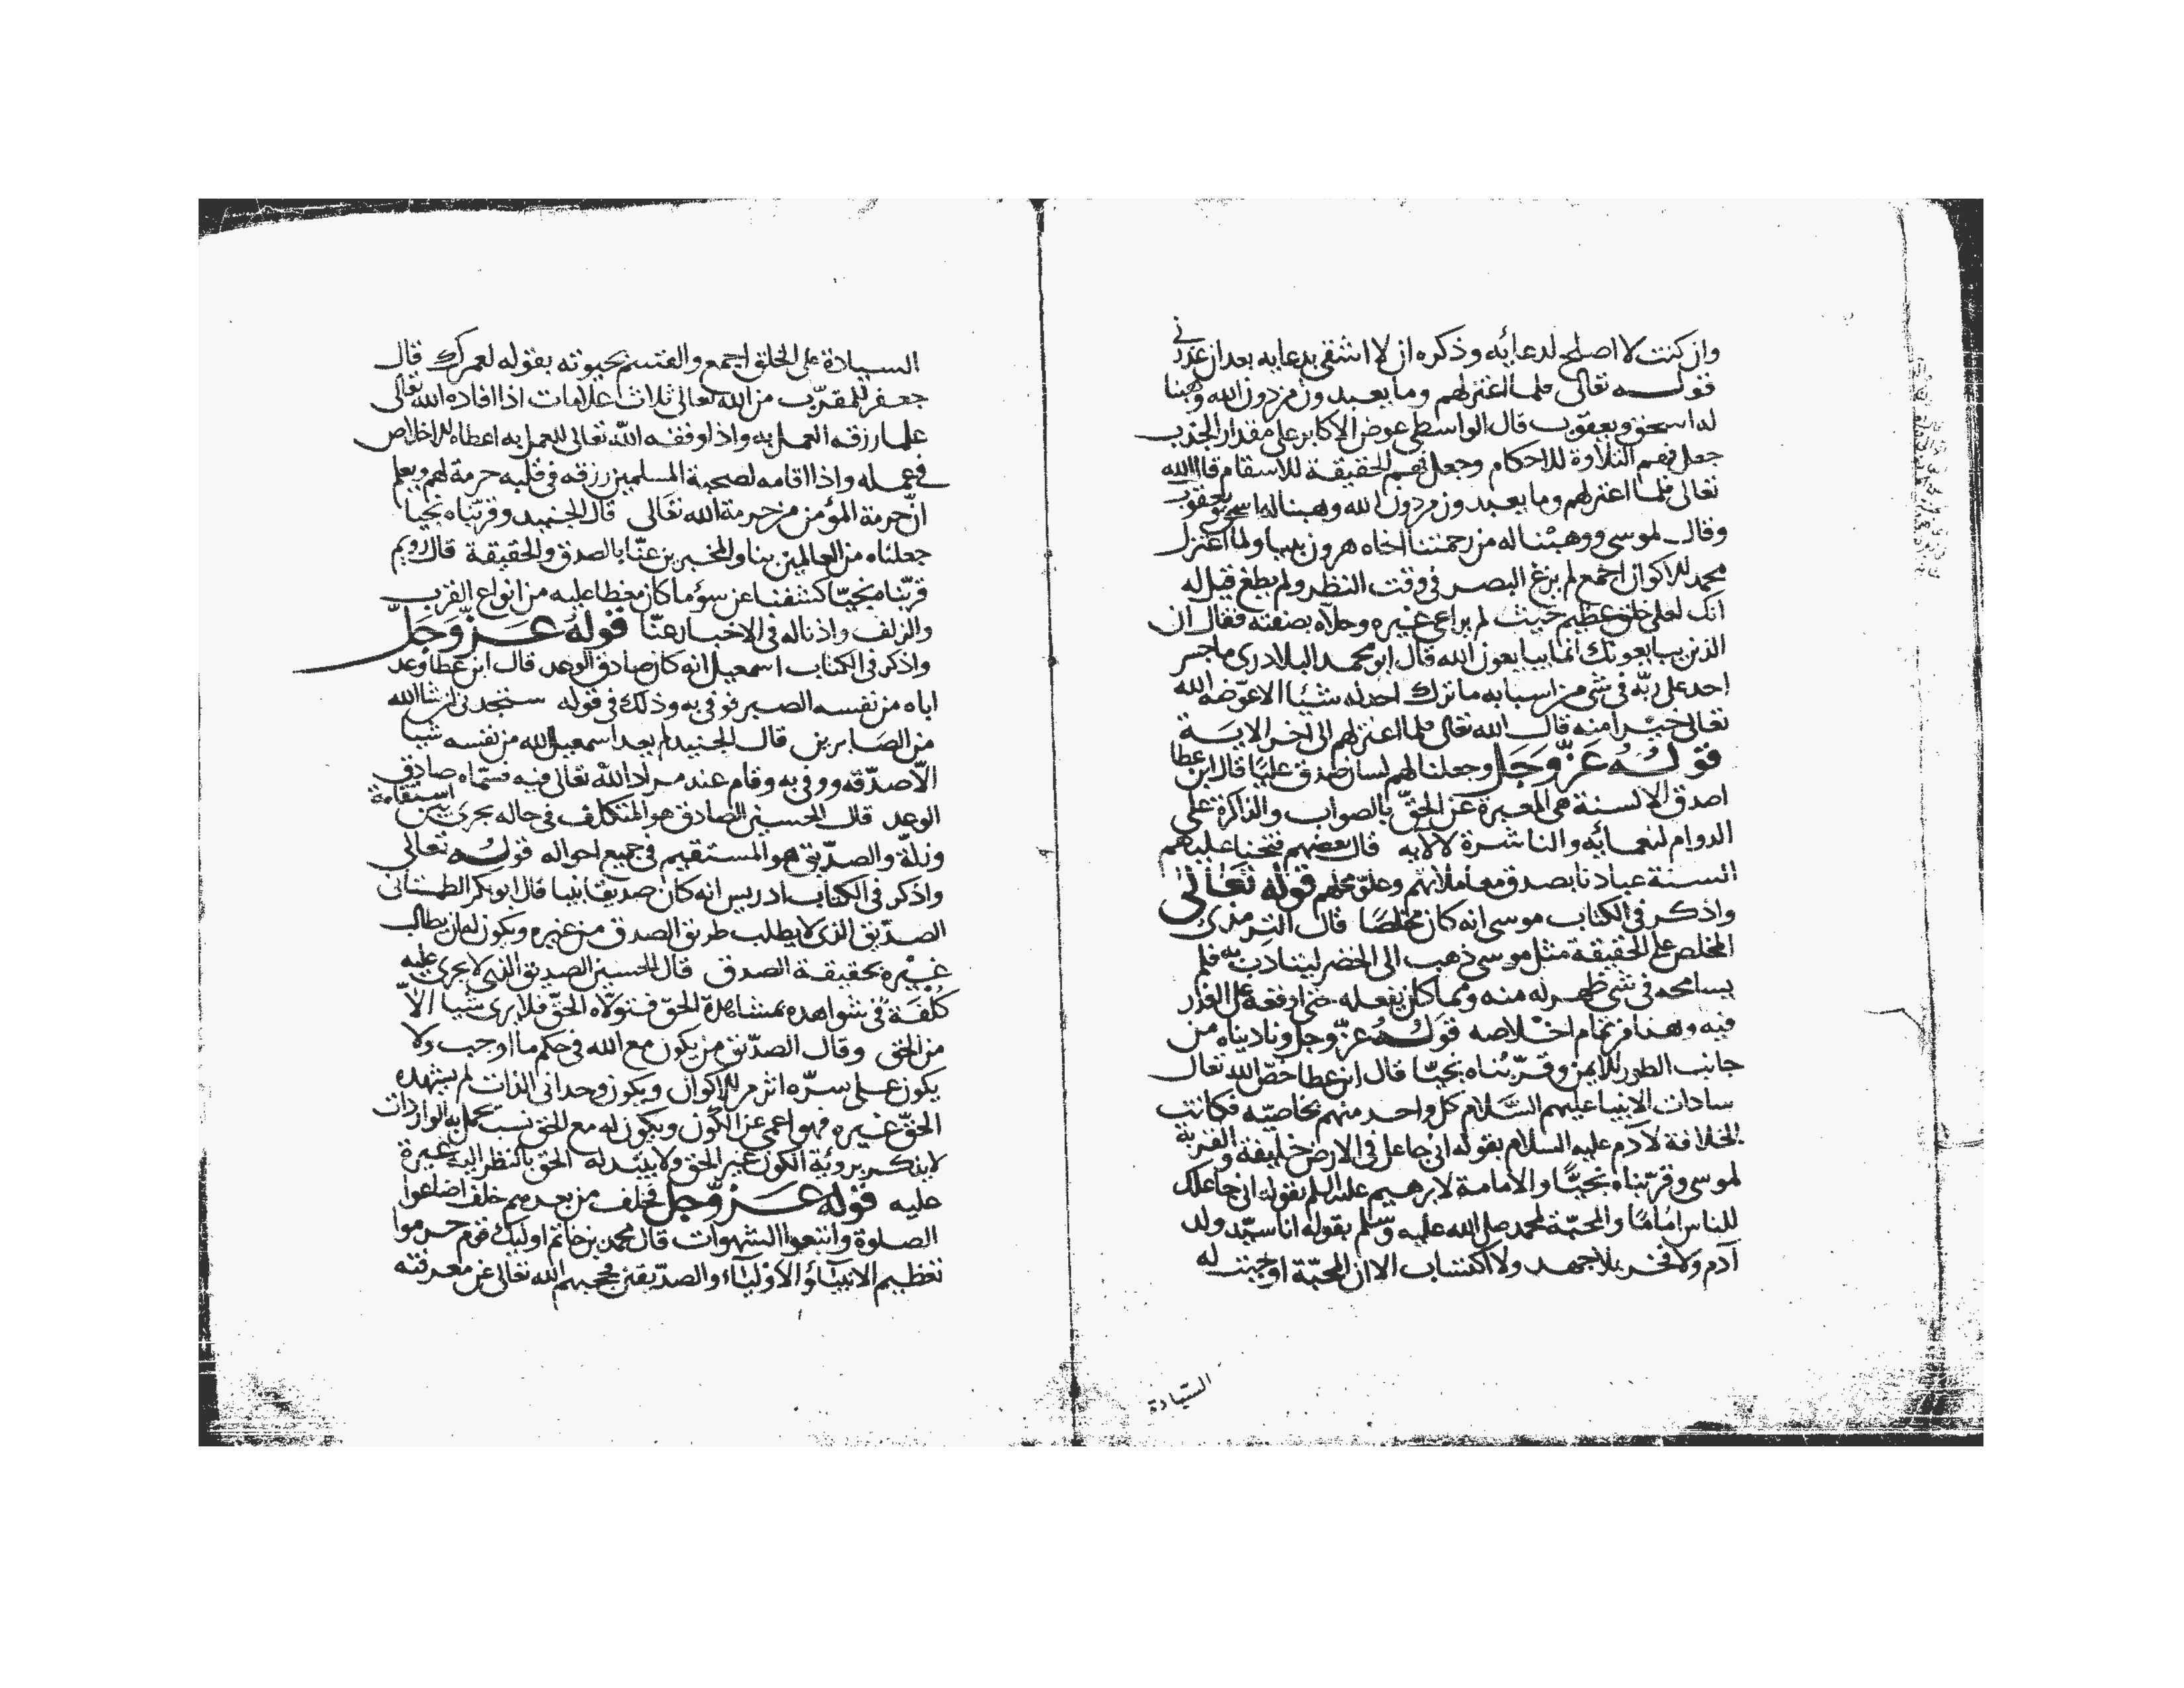 وان كنت لا اصلح لدعائه وذكره ان لا اشقى بدعائه بعد ان عدني
قوله تعالى فلما اعتزلهم وما يعبدون من دون الله وهبنا
له اسحق ويعقوب قال الواسطي عوض الاكابر على مقدار الجذب
جعل فهم التلاوة للاحكام وجعل فهم الحقيقة للاسقام قال الله
تعالى فلما اعتزلهم وما يعبدون من دون الله وهبنا له اسحق ويعقوب
وقال لموسى ووهبنا له من رحمتنا اخاه هرون نبيا ولما اعتزل
محمد للاكوان اجمع لم يزغ البصر في وقت النظر ولم يطغ قيل له
انك لعلى خلق عظيم حيث لم يراعي غيره وحلاه بصفته فقال ان
الذين يبايعونك انما يبايعون الله قال ابو محمد البلادري ما جسر
احد على ربّه في شي من اسبابه ما ترك احد له شيئا الا عوّضه الله
تعالى خيرا منه قال الله تعالى فلما اعتزلهم الى اخر الاية
قوله عَزّ وَجَل وجعلنا لهم لسان صدق عليّا قال ابن عطا
اصدق الالسنة هي المعبرة عن الحقّ بالصواب والذاكرة على
الدوام لنعمائه والناشرة لالايه قال بعضهم فتحنا عليهم
السنة عبادنا بصدق معاملاتهم وعلوّ محلهم قوله تعالى
واذكر في الكتاب موسى انه كان مخلصًا قال الترمذي
المخلص على الحقيقة مثل موسى ذهب الى الخضر ليتادب به فلم
يسامحه في شي ظهر له منه ومما كان يفعله حتى اوقعه على العذر
فيه وهذا من تمام اخلاصه قوله عزّ وجل وناديناه من
جانب الطور الايمن وقرّبناه نجيّا قال ابن عطا خصّ الله تعالى
سادات الانبيا عليهم السّلام كل واحد منهم بخاصيّه فكانت
الخلافة لآدم عليه السلام بقوله اني جاعل في الارض خليفة والقربة
لموسى وقرّبناه نجيّا والامامة لابرهيم عليه السلم بقوله اني جاعلك
للناس امامًا والمحبّة لمحمد صلى الله عليه وسلم بقوله انا سيّد ولد
آدم ولا فخر بلا جهد ولا اكتساب الا ان المحبّة اوجبت له
السّيادة
السيادة على الخلق اجمع والقسم بحيوته بقوله لعمرك قال
جعفر للمقرّب من الله تعالى ثلاث علامات اذا افاده الله تعالى
علما رزقه العمل به واذا وفقه الله تعالى للعمل به اعطاه الاخلاص
في عمله واذا اقامه لصحبة المسلمين رزقه في قلبه حرمة لهم ويعلم
انّ حرمة المؤمن من حرمة الله تعالى قال الجنيد وقربناه نجيا
جعلناه من العالمين بنا والمخبرين عنّا بالصدق والحقيقة قال رويم
قربّناه نجيّا كشفنا عن سرّه ما كان مغطا عليه من انواع القرب
والزلف واذنا له في الاخبار عنّا قوله عَزّ وَجَلّ
واذكر في الكتاب اسمعيل انه كان صادق الوعد قال ابن عطا وعد
اباه من نفسه الصبر فوفى به وذلك في قوله ستجدني ان شا الله
من الصَابرين قال الجنيد لم يعد اسمعيل الله من نفسه شيا
الّا صدّقه ووفى به وقام عند مراد الله تعالى فيه فسمّاه صادق
الوعد قال الحسين الصادق هو المتكلف في حاله يجري بين استقامة
وزلّة والصدّيق هو المستقيم في جميع احواله قوله تعالى
واذكر في الكتاب ادريس انه كان صديقا نبيا قال ابو بكر الطمستاني
الصدّيق الذي لا يطلب طريق الصدق من غيره ويكون له ان يطالب
غيره بحقيقة الصدق قال الحسين الصديق الذي لا يجري عليه
كُلْفَة في شواهده بمشاهدة الحقّ فتولّاه الحقّ فلا يرى شيا الّا
من الحق وقال الصدّيق من يكون مع الله في حكم ما اوجب ولا
يكون على سرّه اثر من الاكوان ويكون وحداني الذات لم يشهده
الحقّ غيره فهو اعمى عن الكون ويكون له مع الحق نسب يحمل به الواردات
لا يذكر برؤية الكون غير الحق ولا يبتد له الحق بالنظر اليه غيرة
عليه قوله عَزّ وجل فخلف من بعدهم خلف اضاعوا
الصلوة واتبعوا الشهوات قال محمد بن حاتم اوليك قوم حرموا
تعظيم الانبيآء والاوْليآء والصدّيقين فحجبهم الله تعالى عن معرفته